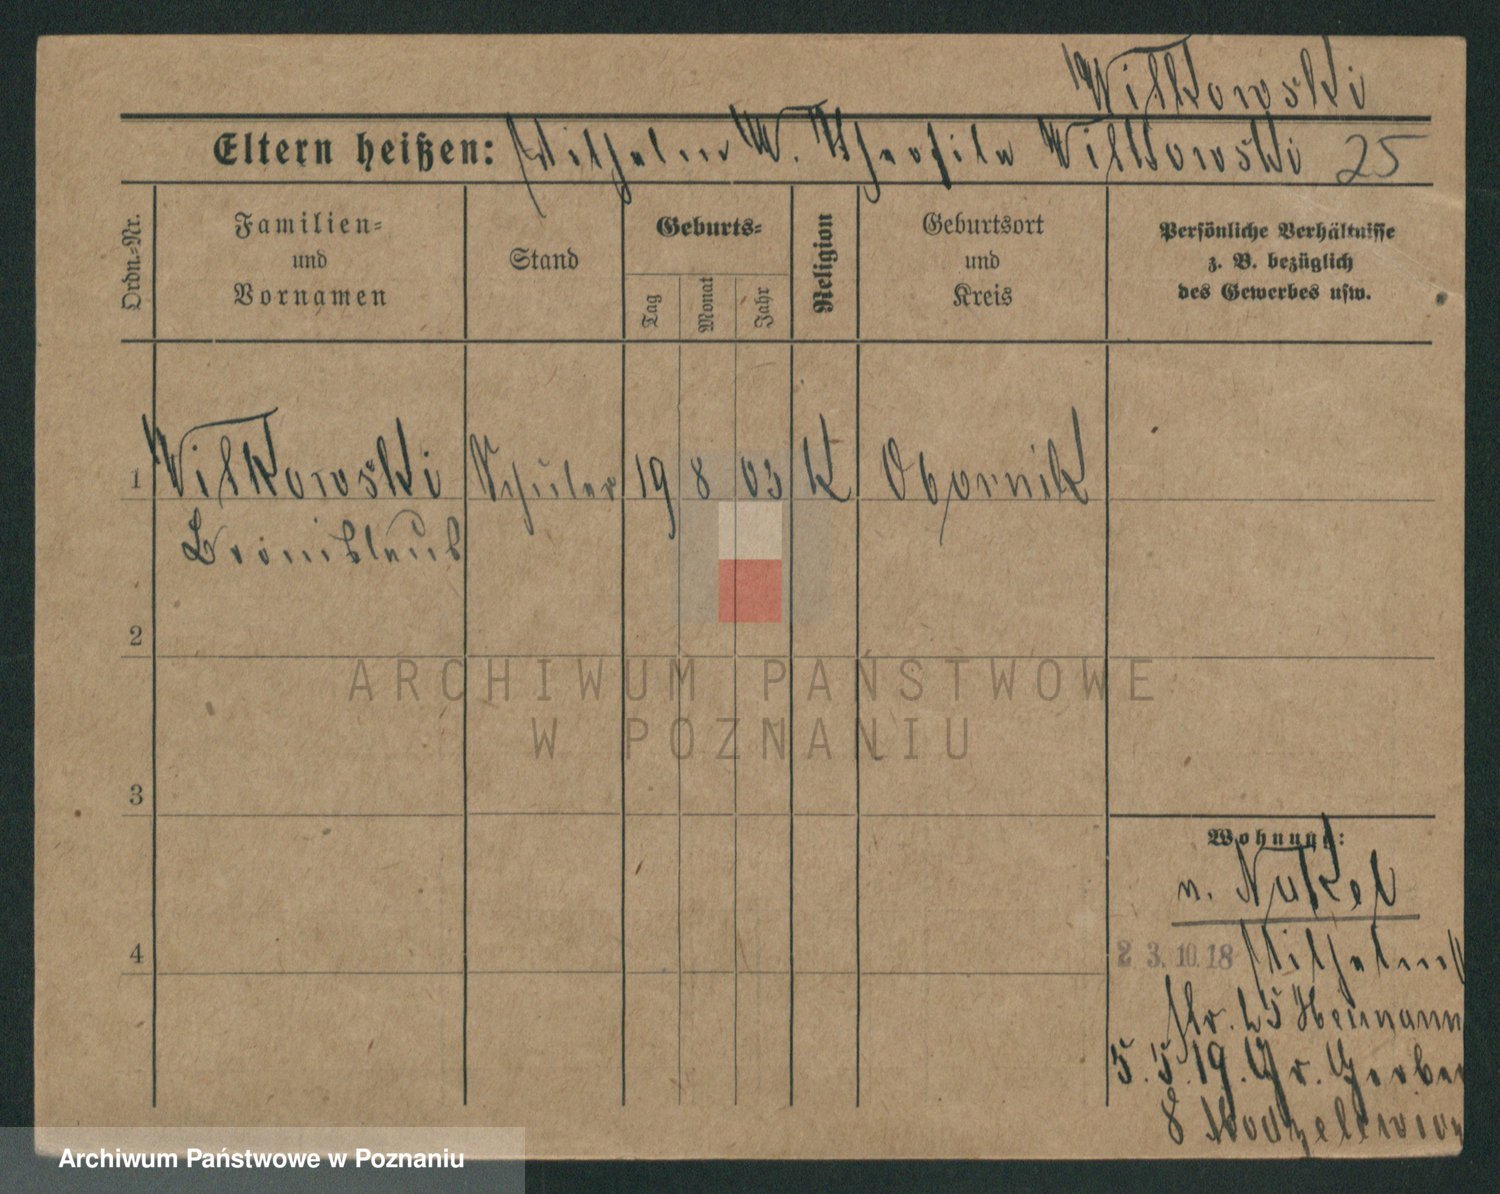 Wilkowski
Eltern heißen: Wilhelm W. Theofila Wilkowski 25
Ordn.-Nr.
Familien-
und
Vornamen
Stand
Geburts-
Tag
Monat
Jahr
Religion
Geburtsort
und
Kreis
Persönliche Verhältnisse
z. B. bezüglich
des Gewerbes usw.
1 Wilkowski Schüler 19 8 03 K Obornik
Bronislaus
2
ARCHIWUM PAŃSTWOWE
W POZNANIU
3
Wohnung:
n. Nakel
4
23.10.18 Wilhelm
Str. 25 Heumann
5.5.19. Gr. Gerber
8
Archiwum Państwowe w Poznaniu